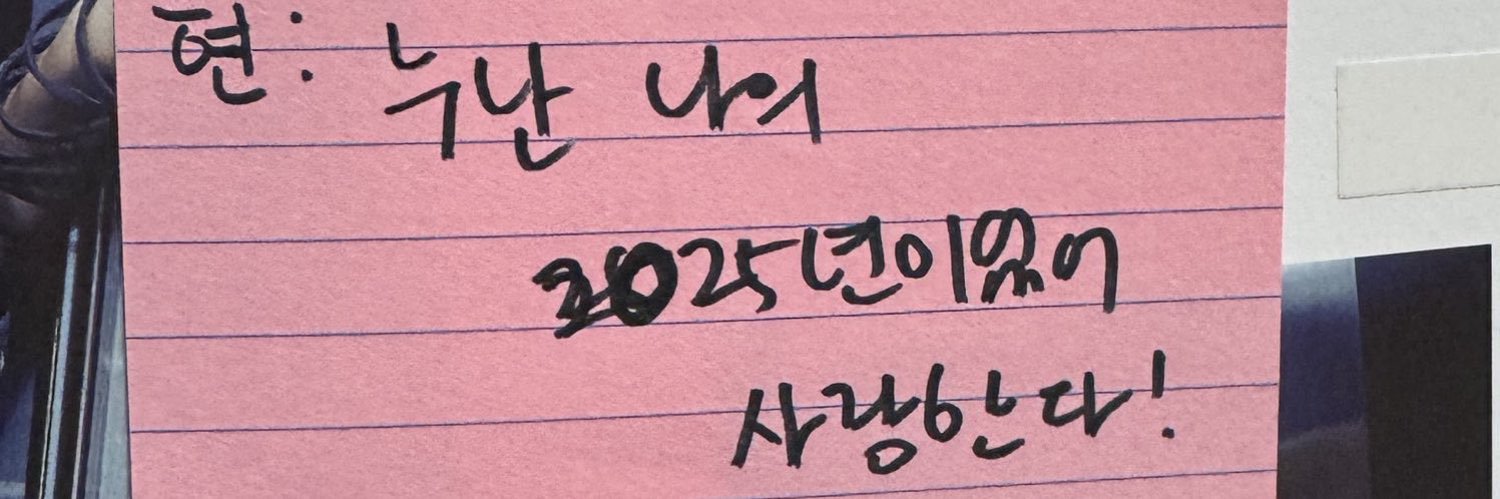 현: 누난 나의
2025년이였어
사랑한다!